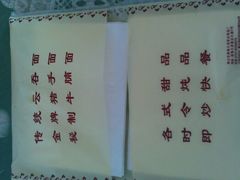 传统云吞面
金牌猪手面
秘制牛腩面
各式甜品
时令炖品
即炒快餐